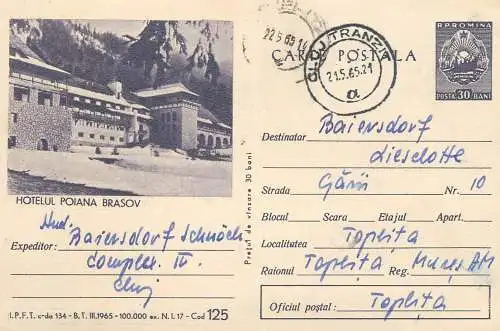 22.5.65.1
CLUJ TRANZIT
21.5.65.21
a
CARTE POSTALA
R.P.ROMINA
POSTA 30 BANI
HOTELUL POIANA BRASOV
Expeditor: Baiersdorf
Complex. IV.
Cluj
I.P.F.T. c-da 134 - B.T. III.1965 - 100.000 ex. N.I. 17 - Cod 125
Prețul de vînzare 30 bani
Destinatar Baiersdorf
Lieselotte
Strada Gării Nr. 10
Blocul Scara Etajul Apart.
Localitatea Toplița
Raionul Toplița Reg. Mureș AM
Oficiul poștal: Toplița